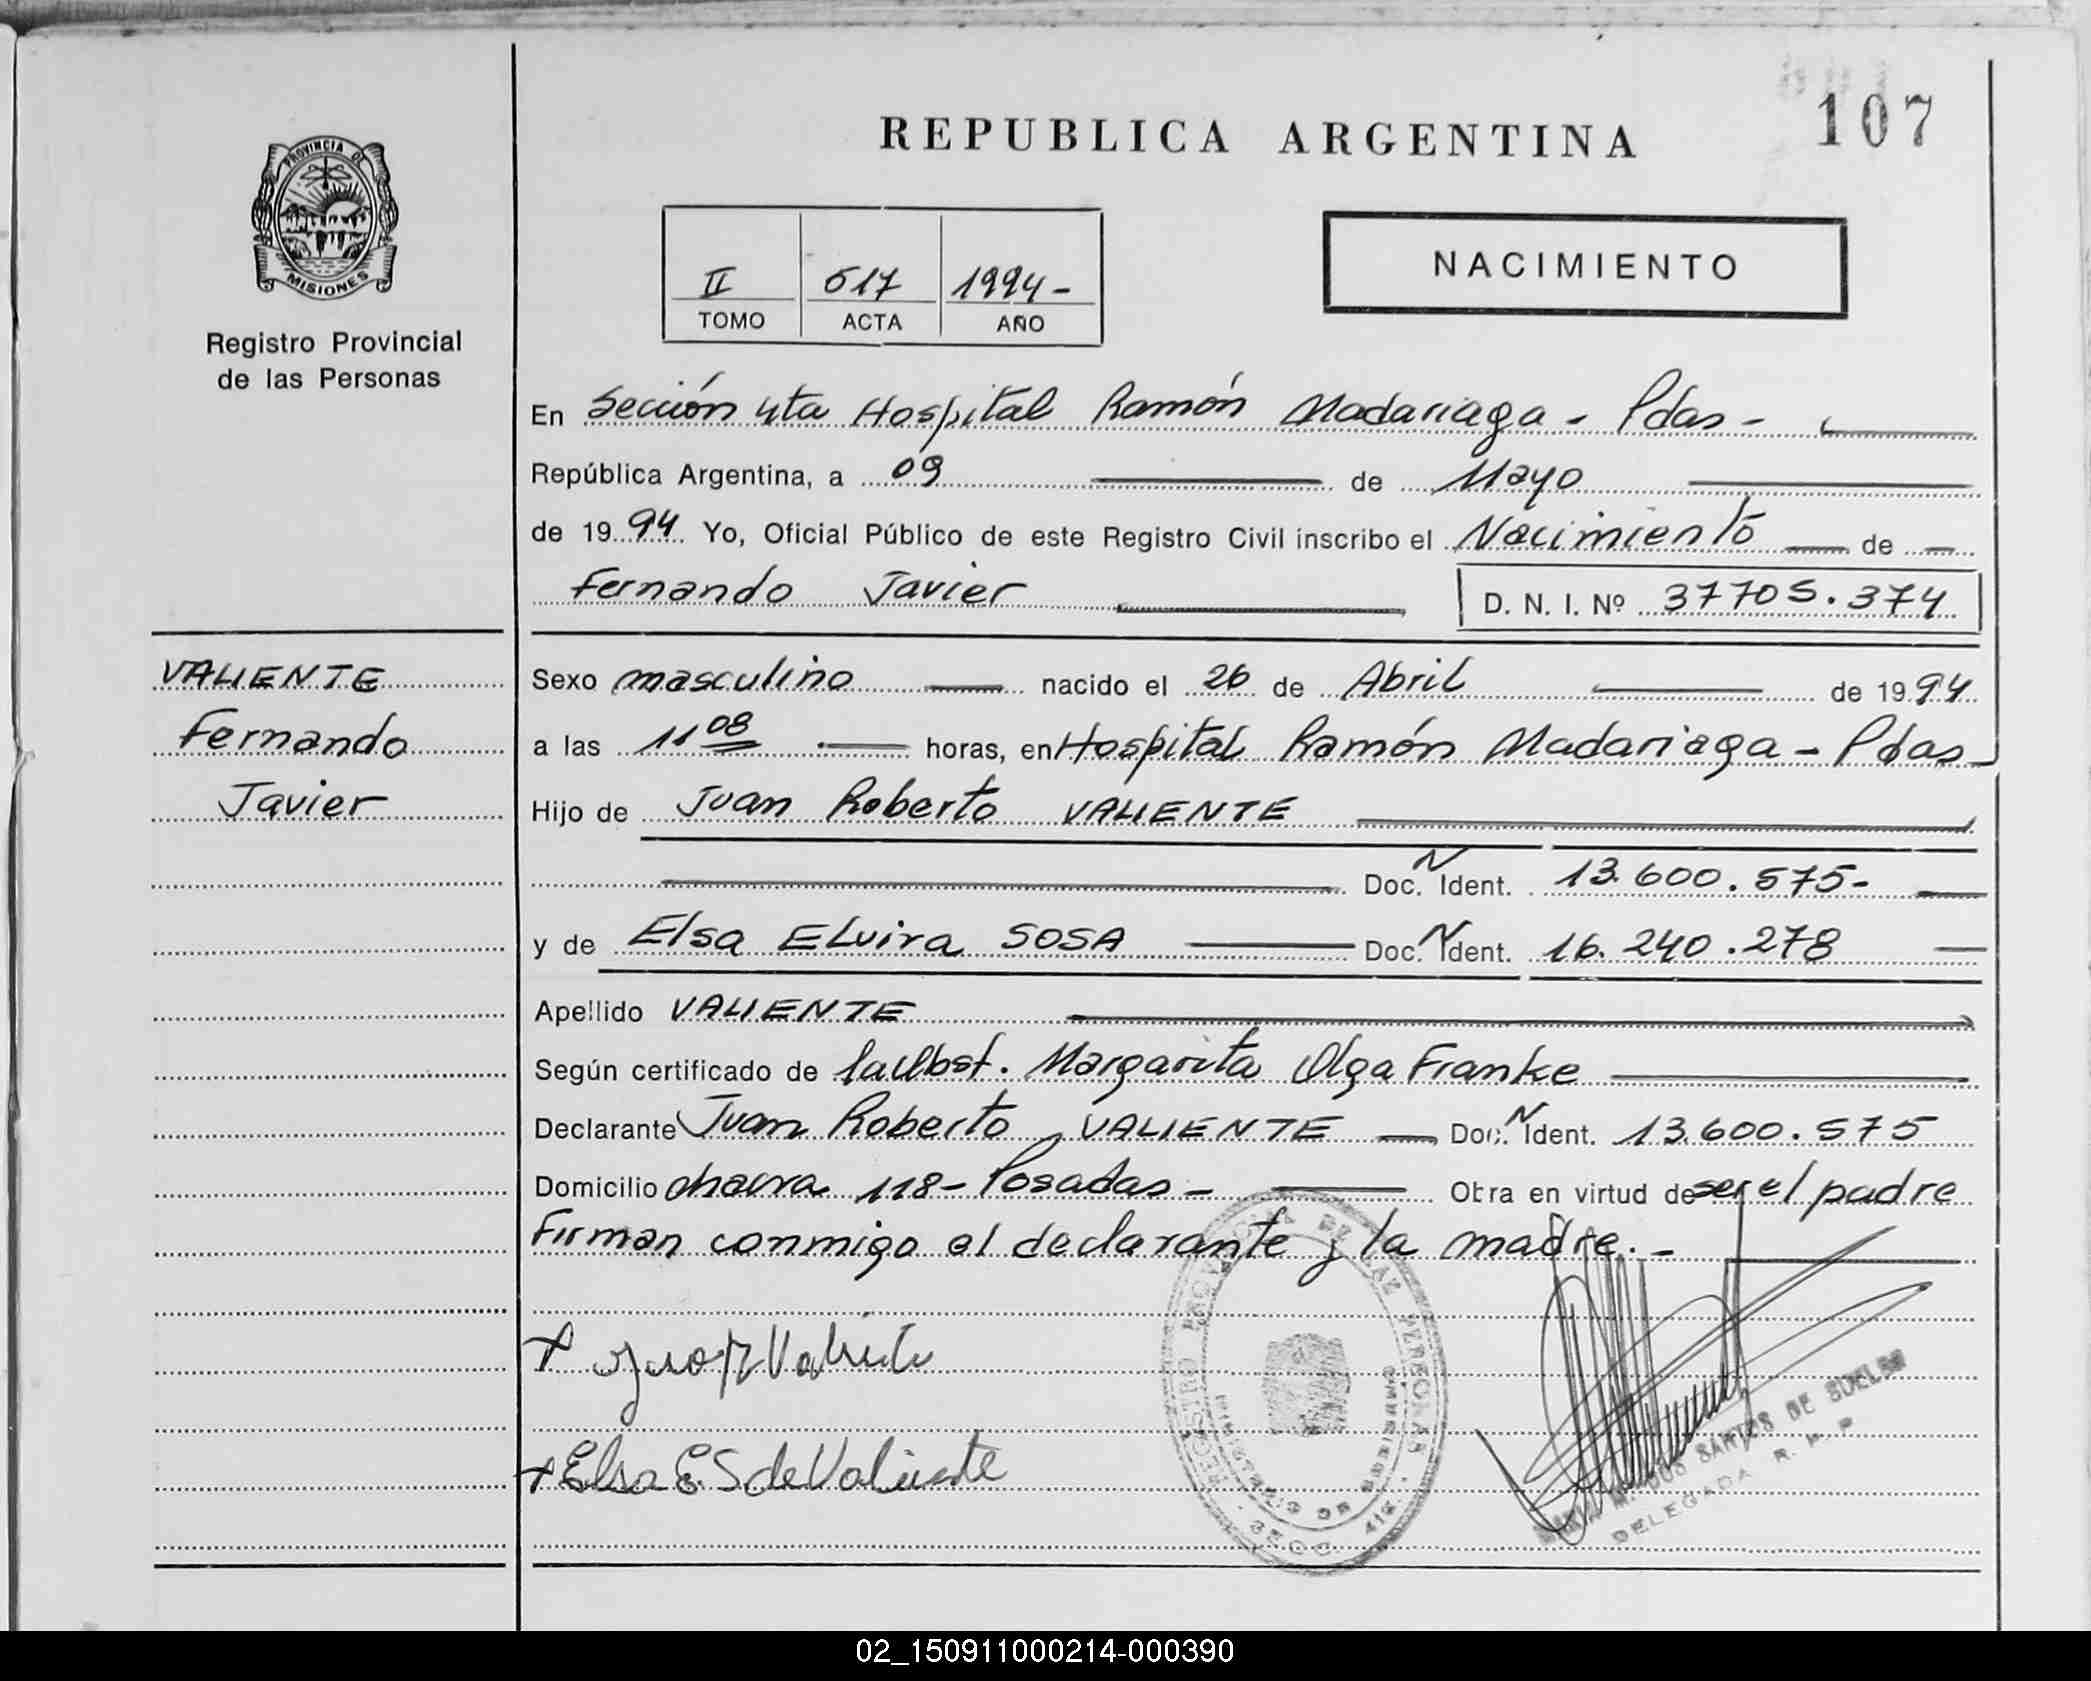 107
REPUBLICA ARGENTINA
PROVINCIA DE
MISIONES
Registro Provincial
de las Personas
II 617 1994-
TOMO ACTA AÑO
NACIMIENTO
En Sección 4ta Hospital Ramón Madariaga - Pdas -
República Argentina, a 09 de Mayo
de 1994 Yo, Oficial Público de este Registro Civil inscribo el Nacimiento de
Fernando Javier D. N. I. Nº 37705.374
VALIENTE
Fernando
Javier
Sexo masculino nacido el 26 de Abril de 1994
a las 11 08 horas, en Hospital Ramón Madariaga - Pdas
Hijo de Juan Roberto VALIENTE
Doc. N Ident. 13.600.575-
y de Elsa Elvira SOSA Doc. N Ident. 16.240.278
Apellido VALIENTE
Según certificado de la Obst. Margarita Olga Franke
Declarante Juan Roberto VALIENTE Doc. N Ident. 13.600.575
Domicilio chacra 118- Posadas - Obra en virtud de ser el padre
Firman conmigo el declarante y la madre.-
Elsa E. S de Valiente
REGISTRO PROVINCIAL DE LAS PERSONAS
MINISTERIO DE GOBIERNO
SECC. 4ta
DOS SANTOS DE
DELEGADA R. P. P.
02_150911000214-000390